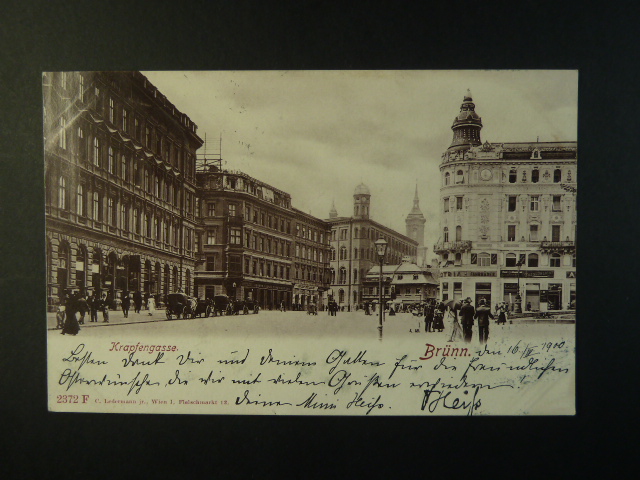 Krapfengasse.
Brünn. den 16/IV 1900
Besten Dank Dir und deinem Gatten für die freundlichen
Osterwünsche, die wir mit vielen Grüßen erwiedern!
Deine Mimi Heiß. Heiß
2372 F C. Ledermann jr., Wien I. Fleischmarkt 12.